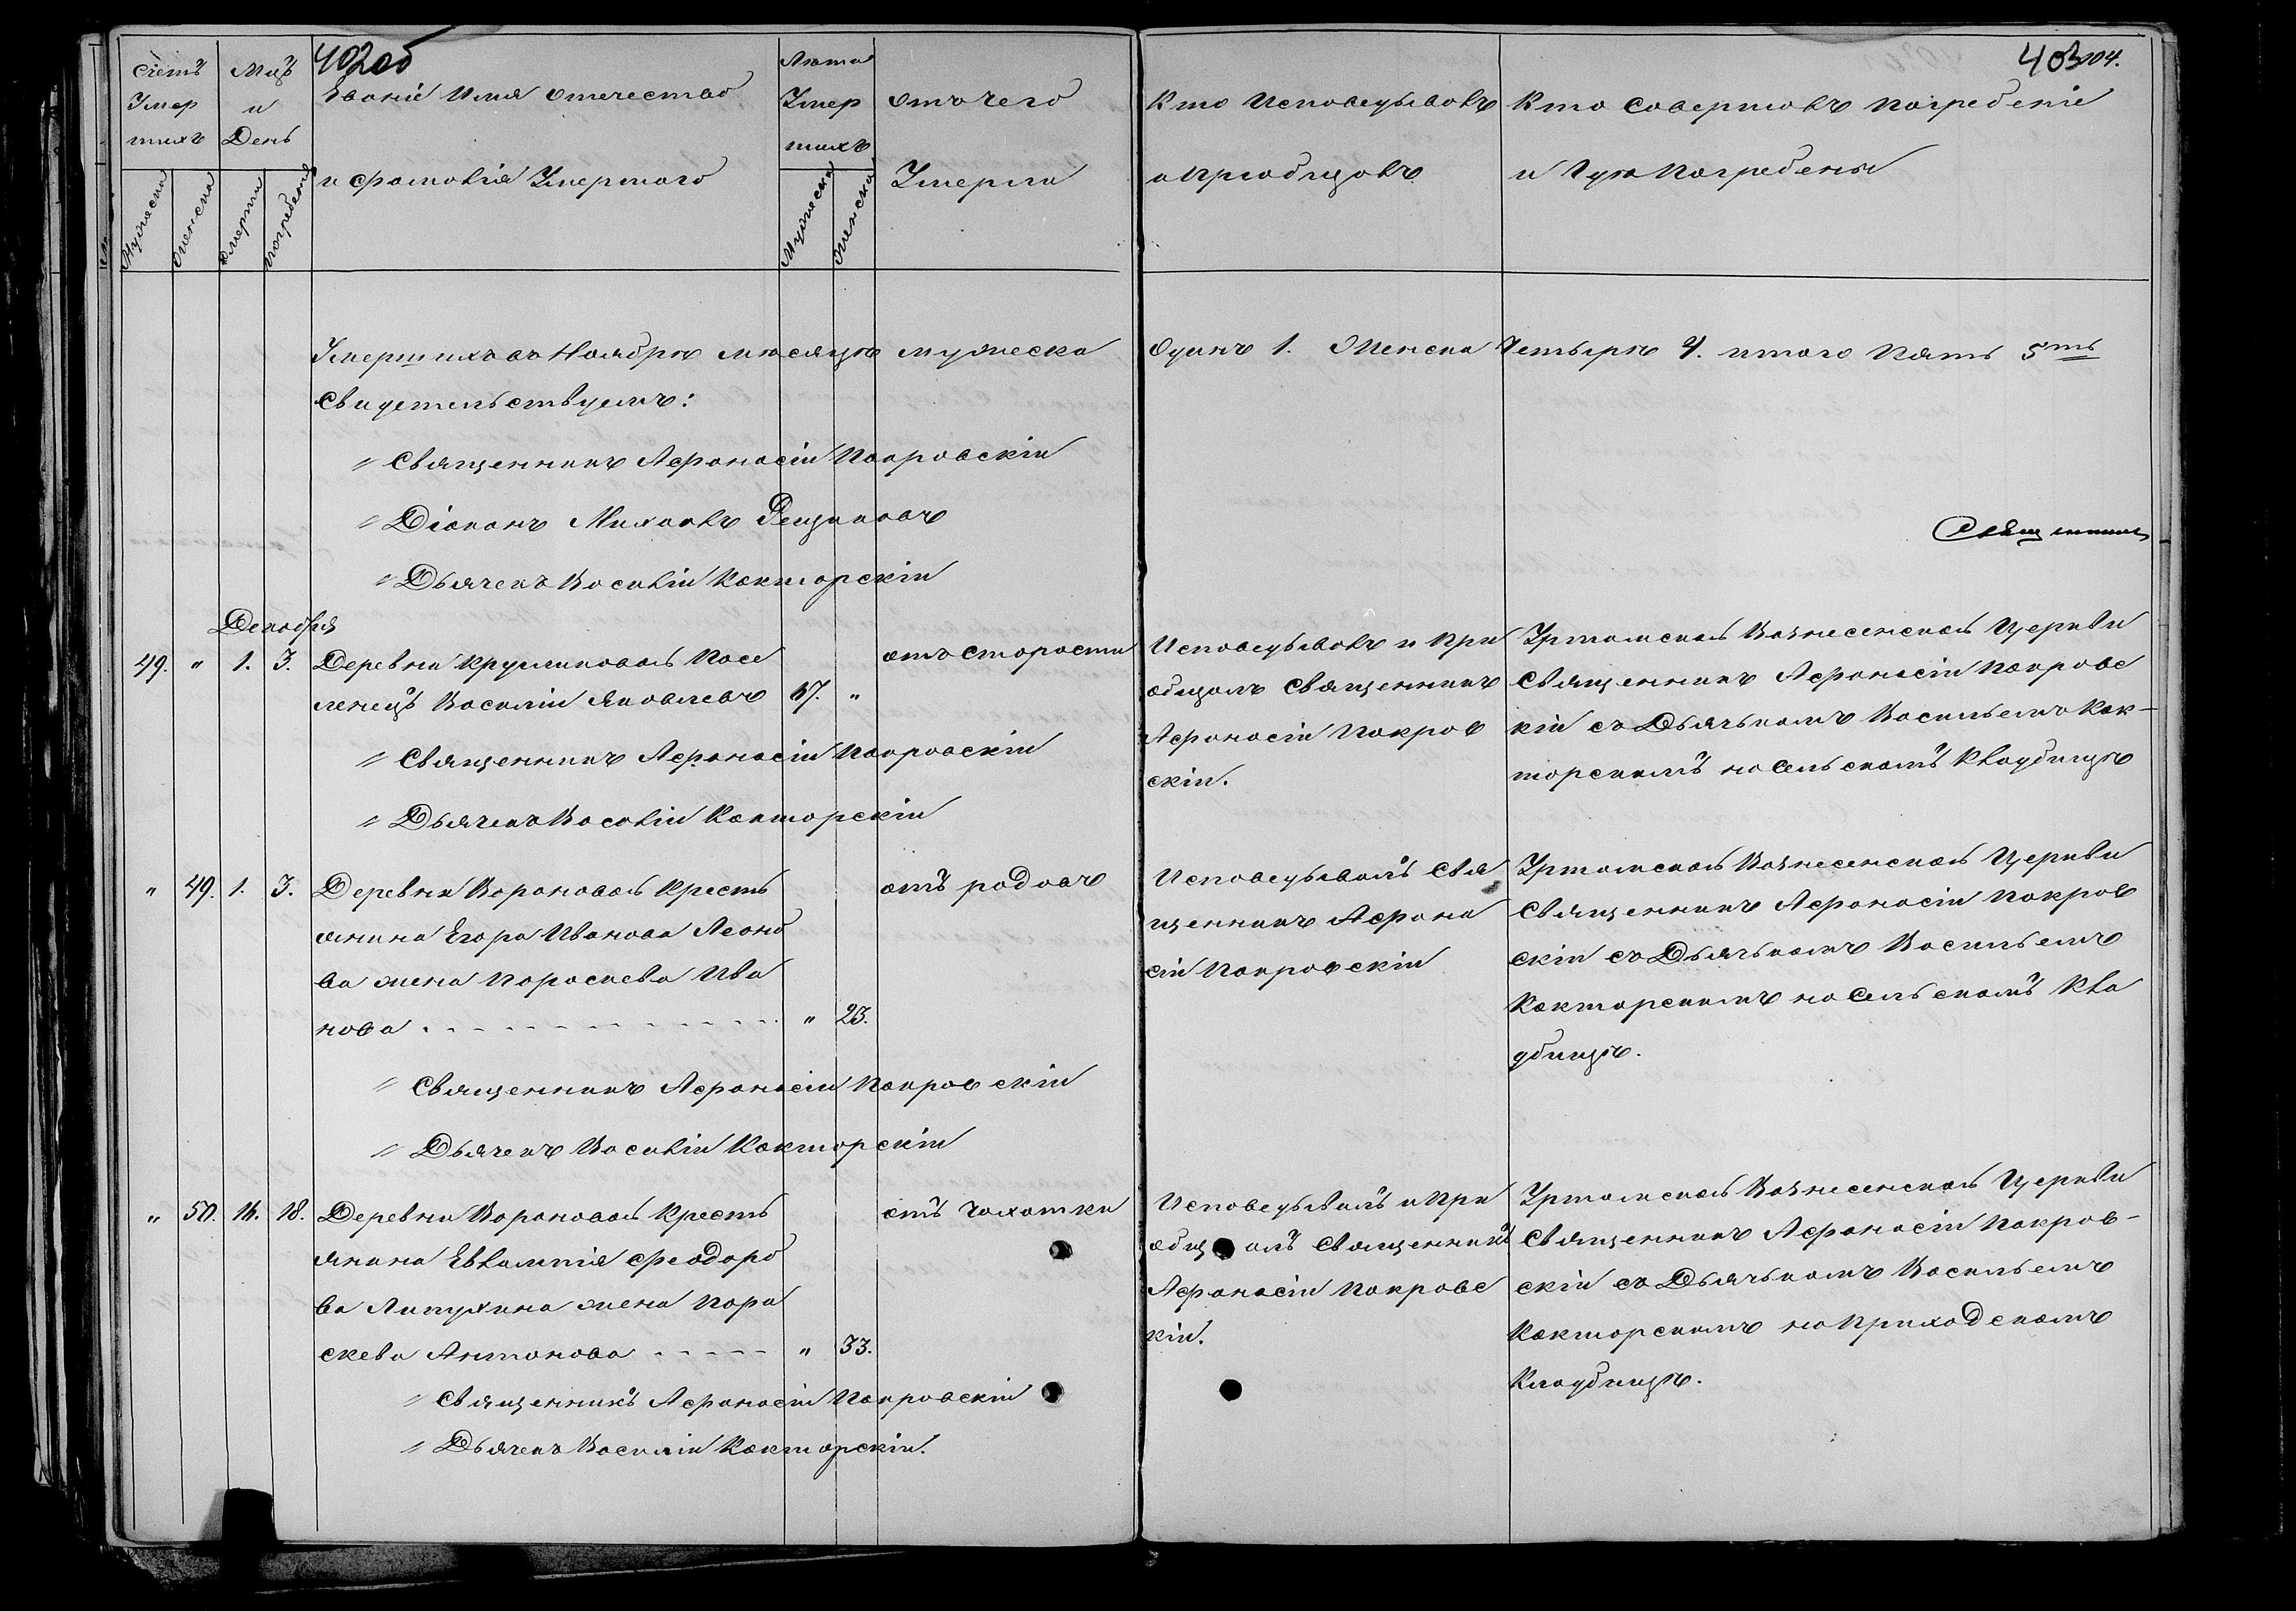 402об
403
104.
Счетъ Умер шихъ
Мужеска
Женска
Мцъ и День
Смерти
погребенія
Званіе Имя отечество
и фамилія Умершаго
Лѣта Умер шихъ
Мужеска
Женска
отъ чего
Умерли
Кто Исповедывалъ
и Пріобщалъ
Кто Совершалъ погребеніе
и Гдѣ Погребены
Умершихъ въ Ноябрѣ месяцѣ мужеска Одинъ 1. Женска Четырѣ 4. итого Пять 5ть
Свидетельствуемъ:
" Священникъ Афанасій Покровскій
" Діаконъ Михаилъ
Священникъ
" Дьячекъ Василій Кокшарскій
Декабря
49. " 1. 3. Деревни Посе
ленецъ Василій Яковлевъ 57. "
отъ старости
Исповедывалъ и При
общалъ Священникъ
Афанасій Покров
скій.
Уртамской Вознесенской Церкви
Священникъ Афанасій Покровс
кій съ Дьячькомъ Васильемъ Кок-
шарскимъ на Сельскомъ Кладбищѣ
" Священникъ Афанасій Покровскій
" Дьячекъ Василій Кокшарскій
" 49. 1. 3. Деревни Вороновой Кресть
янина Егора Иванова Леоно
ва жена Пароскева Ива
нова - - - - - " 23.
отъ родовъ
Исповедывалъ Свя
щенникъ Афона
сій Покровскій
Уртамской Вознесенской Церкви
Священникъ Афанасій Покров
скій съ Дьячькомъ Васильемъ
Кокшарскимъ на Сельскомъ Кла
дбищѣ.
" Священникъ Афанасій Покровскій
" Дьячекъ Василій Кокшарскій
" 50. 16. 18. Деревни Вороновой Кресть
янина Евлампія Феодоро
ва Липухина жена Пара
скева Антонова - - - - - " 33.
отъ чахотки
Исповедывалъ и При
общалъ Священникъ
Афанасій Покровс
кій.
Уртамской Вознесенской Церкви
Священникъ Афанасій Покров-
скій съ Дьячькомъ Васильемъ
Кокшарскимъ на Приходскомъ
Кладбищѣ.
" Священникъ Афанасій Покровскій
" Дьячекъ Василій Кокшарскій.